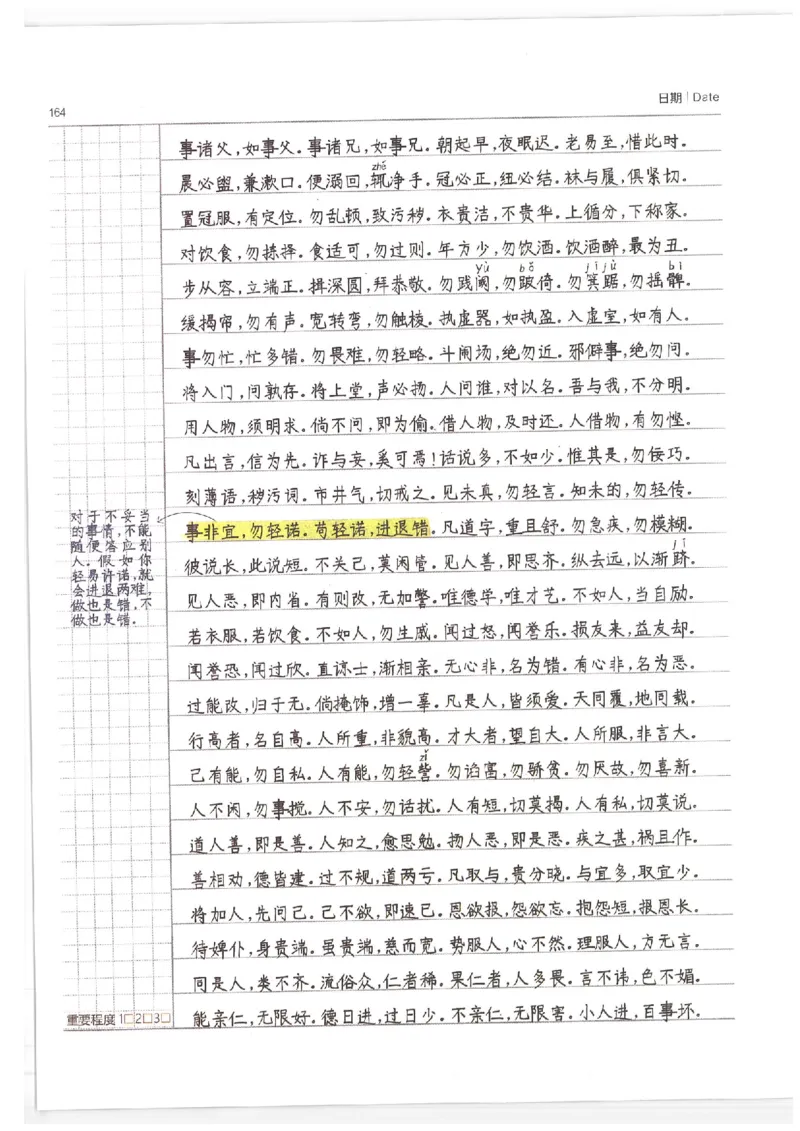 日期 | Date
164
事诸父,如事父.事诸兄,如事兄.朝起早,夜眠迟.老易至,惜此时.
zhé
晨必盥,兼漱口.便溺回,辄净手.冠必正,纽必结.袜与履,俱紧切.
置冠服,有定位.勿乱顿,致污秽.衣贵洁,不贵华.上循分,下称家.
对饮食,勿拣择.食适可,勿过则.年方少,勿饮酒.饮酒醉,最为丑.
yù bǒ jī jù bì
步从容,立端正.揖深圆,拜恭敬.勿践阈,勿跛倚.勿箕踞,勿摇髀.
缓揭帘,勿有声.宽转弯,勿触棱.执虚器,如执盈.入虚室,如有人.
事勿忙,忙多错.勿畏难,勿轻略.斗闹场,绝勿近.邪僻事,绝勿问.
将入门,问孰存.将上堂,声必扬.人问谁,对以名.吾与我,不分明.
用人物,须明求.倘不问,即为偷.借人物,及时还.人借物,有勿悭.
凡出言,信为先.诈与妄,奚可焉!话说多,不如少.惟其是,勿佞巧.
刻薄语,秽污词.市井气,切戒之.见未真,勿轻言.知未的,勿轻传.
事非宜,勿轻诺.苟轻诺,进退错.凡道字,重且舒.勿急疾,勿模糊.
jī
彼说长,此说短.不关己,莫闲管.见人善,即思齐.纵去远,以渐跻.
见人恶,即内省.有则改,无加警.唯德学,唯才艺.不如人,当自励.
若衣服,若饮食.不如人,勿生戚.闻过怒,闻誉乐.损友来,益友却.
闻誉恐,闻过欣.直谅士,渐相亲.无心非,名为错.有心非,名为恶.
过能改,归于无.倘掩饰,增一辜.凡是人,皆须爱.天同覆,地同载.
行高者,名自高.人所重,非貌高.才大者,望自大.人所服,非言大.
zǐ
己有能,勿自私.人有能,勿轻訾.勿谄富,勿骄贫.勿厌故,勿喜新.
人不闲,勿事搅.人不安,勿话扰.人有短,切莫揭.人有私,切莫说.
道人善,即是善.人知之,愈思勉.扬人恶,即是恶.疾之甚,祸且作.
善相劝,德皆建.过不规,道两亏.凡取与,贵分晓.与宜多,取宜少.
将加人,先问己.己不欲,即速已.恩欲报,怨欲忘.抱怨短,报恩长.
待婢仆,身贵端.虽贵端,慈而宽.势服人,心不然.理服人,方无言.
同是人,类不齐.流俗众,仁者稀.果仁者,人多畏.言不讳,色不媚.
能亲仁,无限好.德日进,过日少.不亲仁,无限害.小人进,百事坏.
对于不妥当
的事情,不能
随便答应别
人.假如你
轻易许诺,就
会进退两难,
做也是错,不
做也是错.
重要程度 1□2□3□